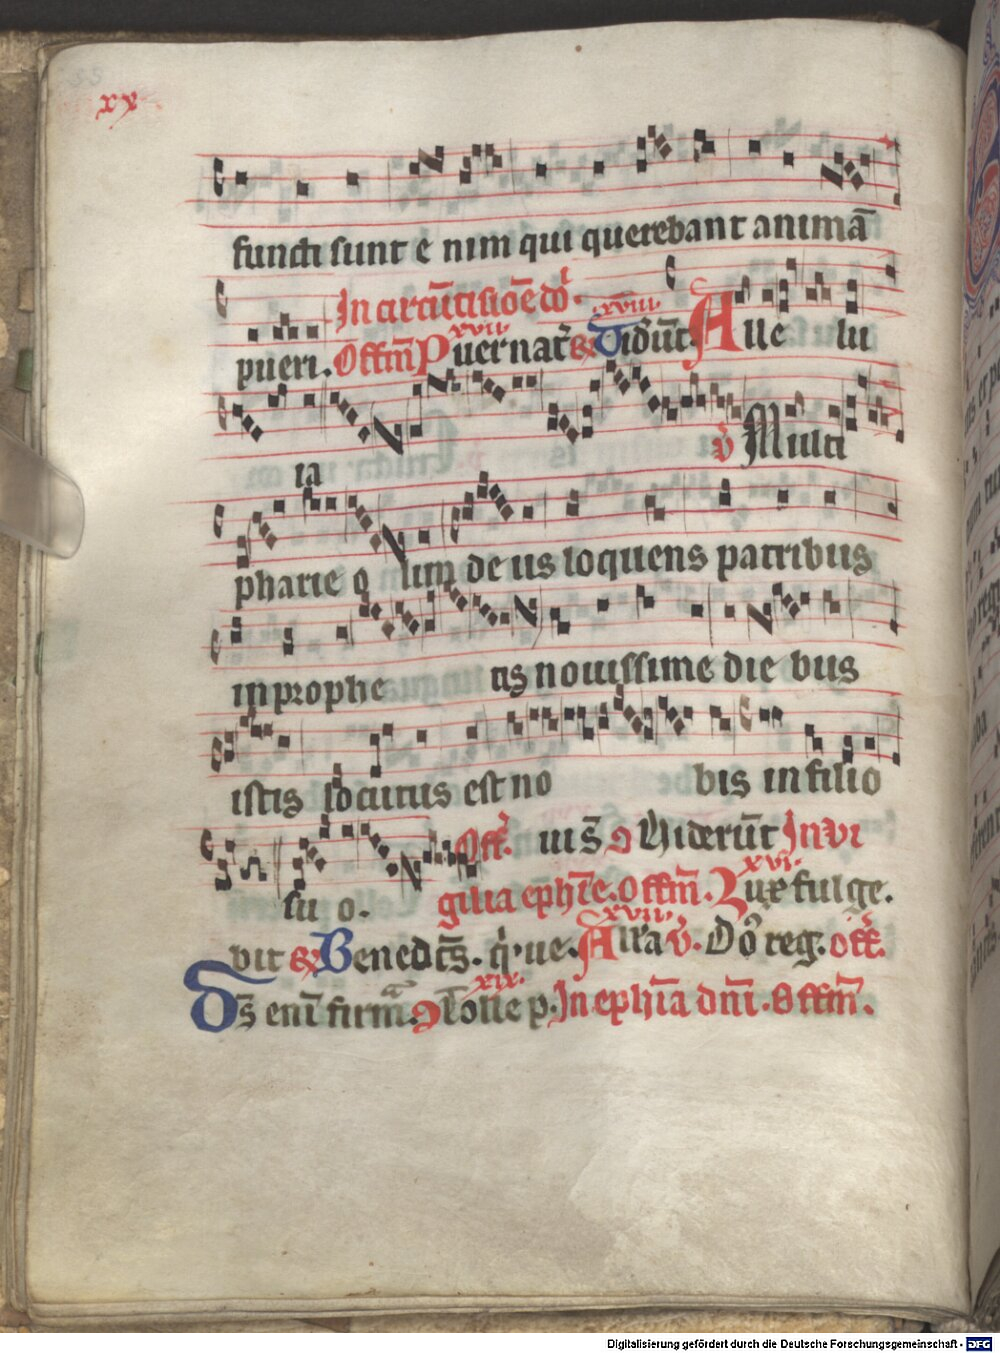 xx
functi sunt e nim qui querebant animā
In circūcisiōe dōⁱ.
xvii. xviii.
pueri. Offm̄ Puer nat᷑ & Vidūt. Alle lu
ia ℣ Multi
pharie o lim de us loquens patribus
in prophe tis nouissime die bus
istis locutus est no bis in filio
su o. Off᷑. uiš Viderūt In vi
gilia ephīe. Offm̄. Lux fulge.
xvi. xvii.
bit & Benedc̄s. q̇ ue. All'a ℣. Dō reg. off᷑.
xix.
Dš enī firmᵃ. Tolle p. In ephīa dnī. Offm̄.
Digitalisierung gefördert durch die Deutsche Forschungsgemeinschaft - DFG